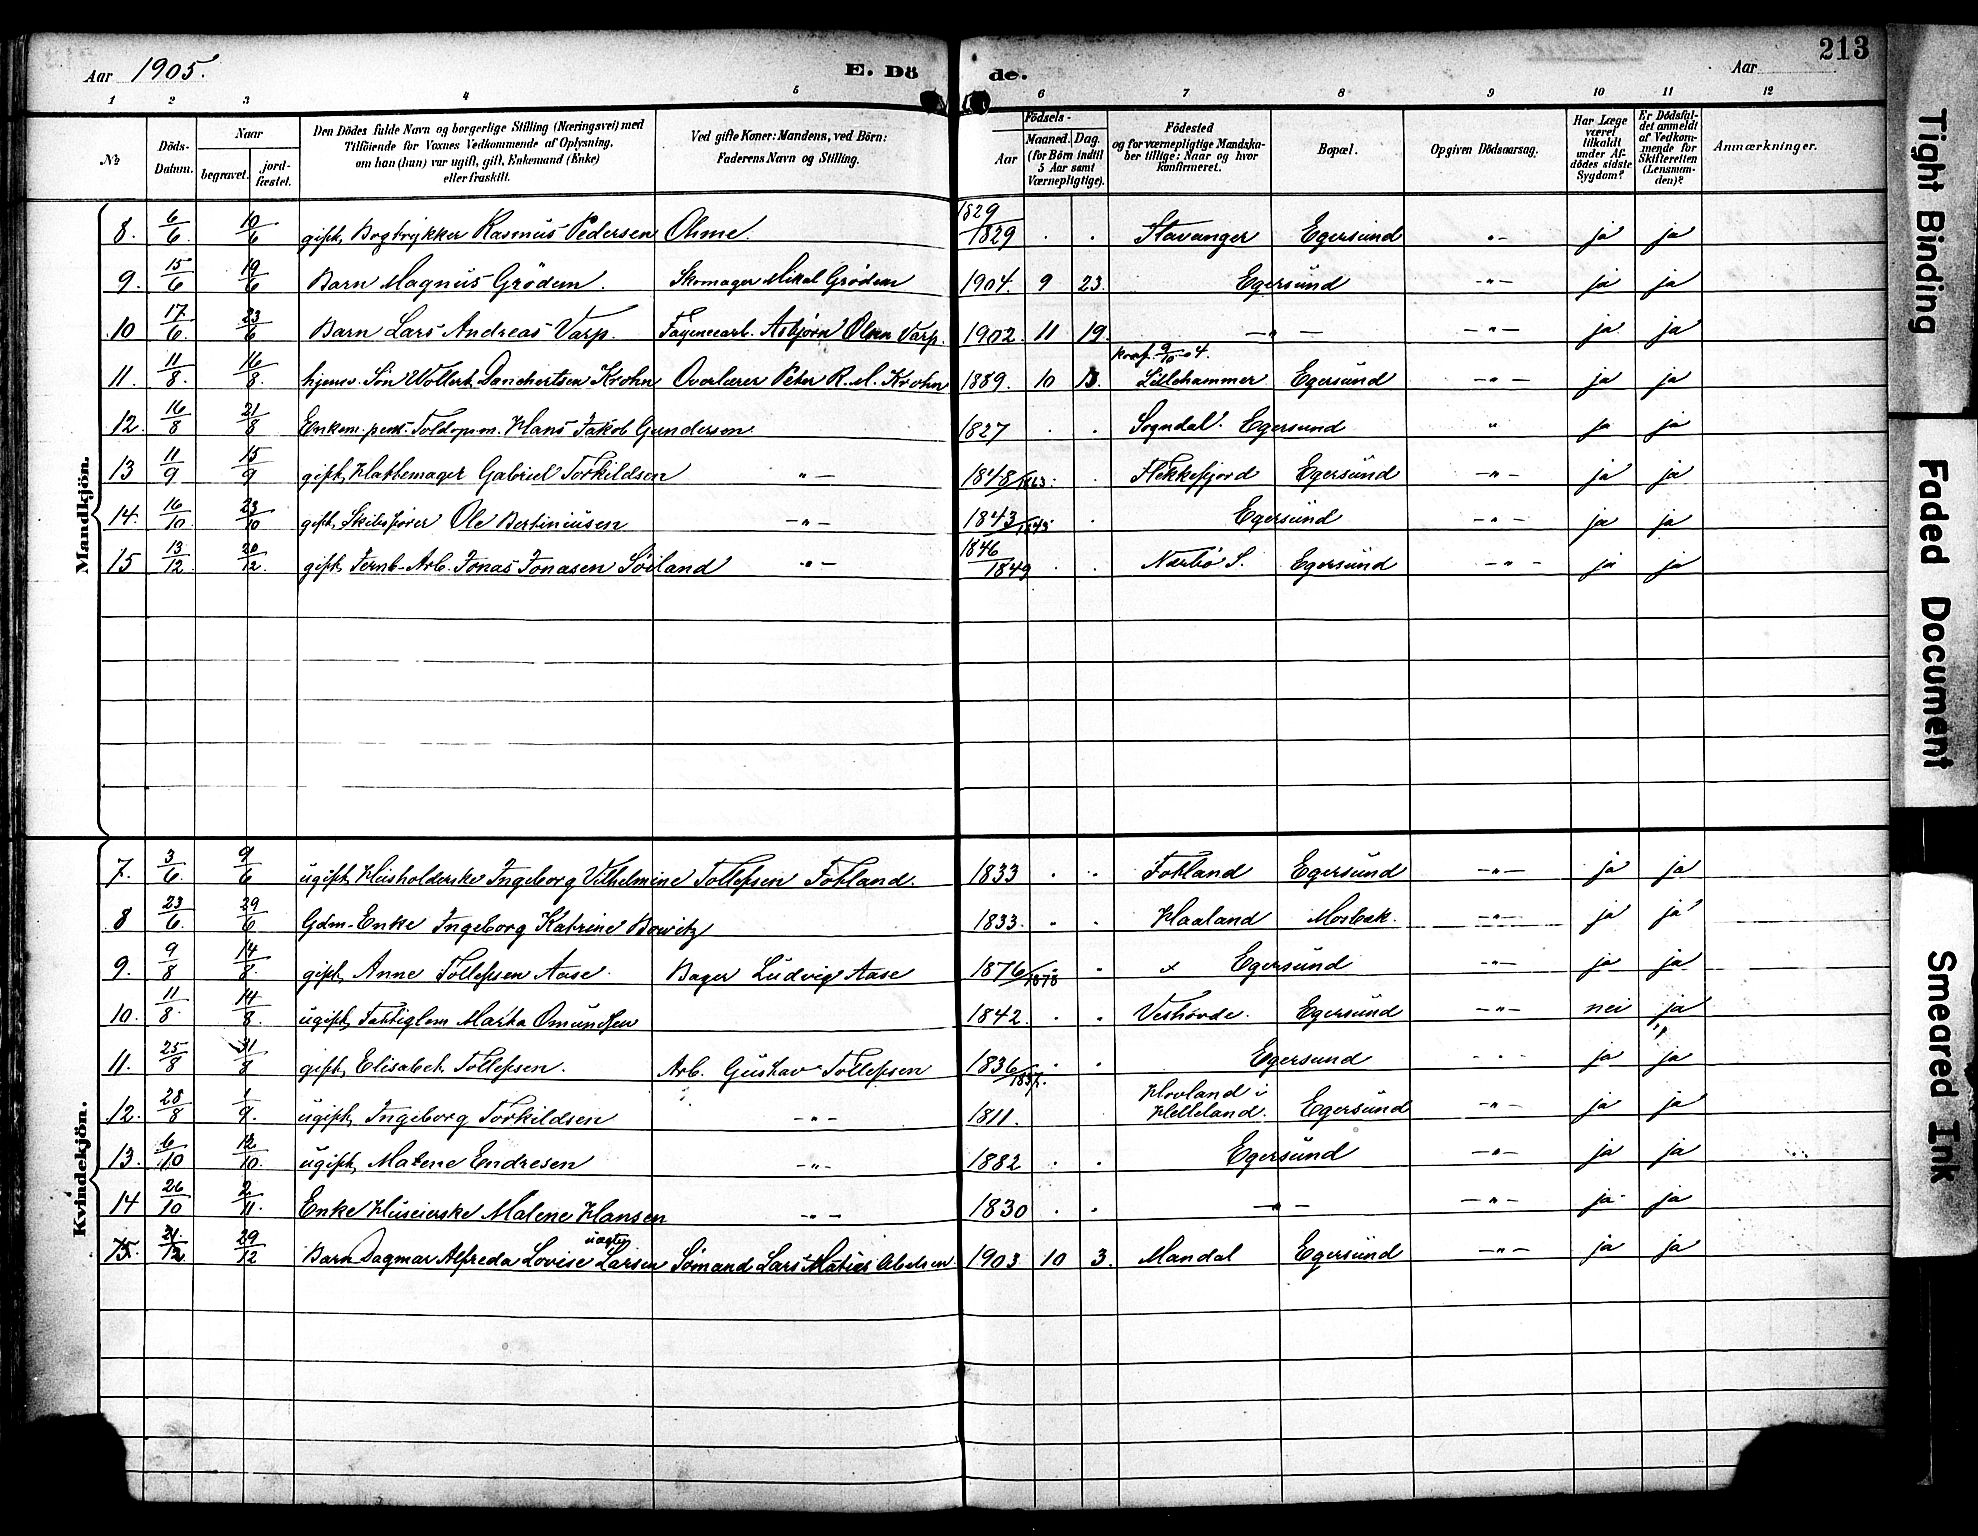 Aar 1905. E. Dö de. Aar 213
1 2 3 4 5 6 7 8 9 10 11 12
№ Döds-Datum. Naar begravet. jordfæstet. Den Dödes fulde Navn og borgerlige Stilling (Næringsvei) med Tilföiende for Voxnes Vedkommende af Oplysning, om han (hun) var ugift, gift, Enkemand (Enke) eller fraskilt. Ved gifte Koner: Mandens, ved Börn: Faderens Navn og Stilling. Födsels- Aar Maaned. Dag. (for Börn indtil 5 Aar samt Værnepligtige). Födested og for værnepligtige Mandskaber tillige: Naar og hvor konfirmeret. Bopæl. Opgiven Dödsaarsag. Har Læge været tilkaldt under Afdödes sidste Sygdom? Er Dödsfaldet anmeldt af Vedkommende for Skifteretten (Lensmanden)? Anmærkninger.
Mandkjön.
8. 6/6 10/6 gift, Bogtrykker Rasmus Pedersen Ohme. 1829/1829 . . Stavanger Egersund " ja ja
9. 15/6 19/6 Barn Magnus Grödem. Skomager Mikal Grödem 1904. 9 23. Egersund -"- ja ja
10 17/6 23/6 Barn Lars Andreas Varp. Fayencearb. Asbjørn Olsen Varp. 1902. 11 19. -"- -"- ja ja
konf. 9/10 04.
11. 11/8. 16/8. hjemv. Søn Wollert Danchertsen Krohn Overlærer Peter R. M. Krohn 1889. 10 Lillehammer Egersund -"- ja ja
12. 16/8 21/8 Enkem. pens. Toldopsm. Hans Jakob Gundersen 1827 . . Sogndal. Egersund " ja ja
13 11/9 15/9 gift, Hattemager Gabriel Torkildsen -"- 1848/1863. Flekkefjord Egersund -"- ja ja
14. 16/10 23/10 gift, Skibsfører Ole Bertiniusen -"- 1843/1845 . Egersund -"- ja ja
15 13/12 20/12. gift, Jernb-Arb. Jonas Jonasen Söiland -"- 1846/1849 . . Nærbø S. Egersund -"- ja ja
Kvindekjön.
7. 3/6. 9/6 ugift, Husholderske Ingeborg Vilhelmine Tollefsen Fotland. 1833 . . Fotland Egersund -"- ja ja
8 23/6. 29/6 Gdm-Enke Ingeborg Katrine Bowitz 1833. . . Haaland Mosbæk. -"- ja ja
9. 9/8 14/8. gift, Anne Tollefsen Aase. Bager Ludvig Aase 1876/1878 . Egersund -"- ja ja
10. 11/8 14/8. ugift, Fattiglem Marta Omundsen 1842. . . Veshovde. Egersund -"- nei ja
11. 25/8 31/8 gift, Elisabet Tollefsen. Arb. Gustav Tollefsen 1836/1837. . . Egersund - - ja ja
12. 28/8 1/9. ugift, Ingeborg Torkildsen -"- 1811. Hovland i Helleland. Egersund -"- ja ja
13. 6/10 12/10. ugift, Malene Endresen -"- 1882 . . Egersund -"- ja ja
14 26/10 2/11. Enke Huseierske Malene Hansen -"- 1830 . . -"- -"- ja ja
uægte
15. 21/12. 29/12 Barn Dagmar Alfreda Lovise Larsen Sømand Lars Matias Abelsen. 1903 10 3. Mandal Egersund -"- ja ja
Tight Binding
Faded Document
Smeared Ink